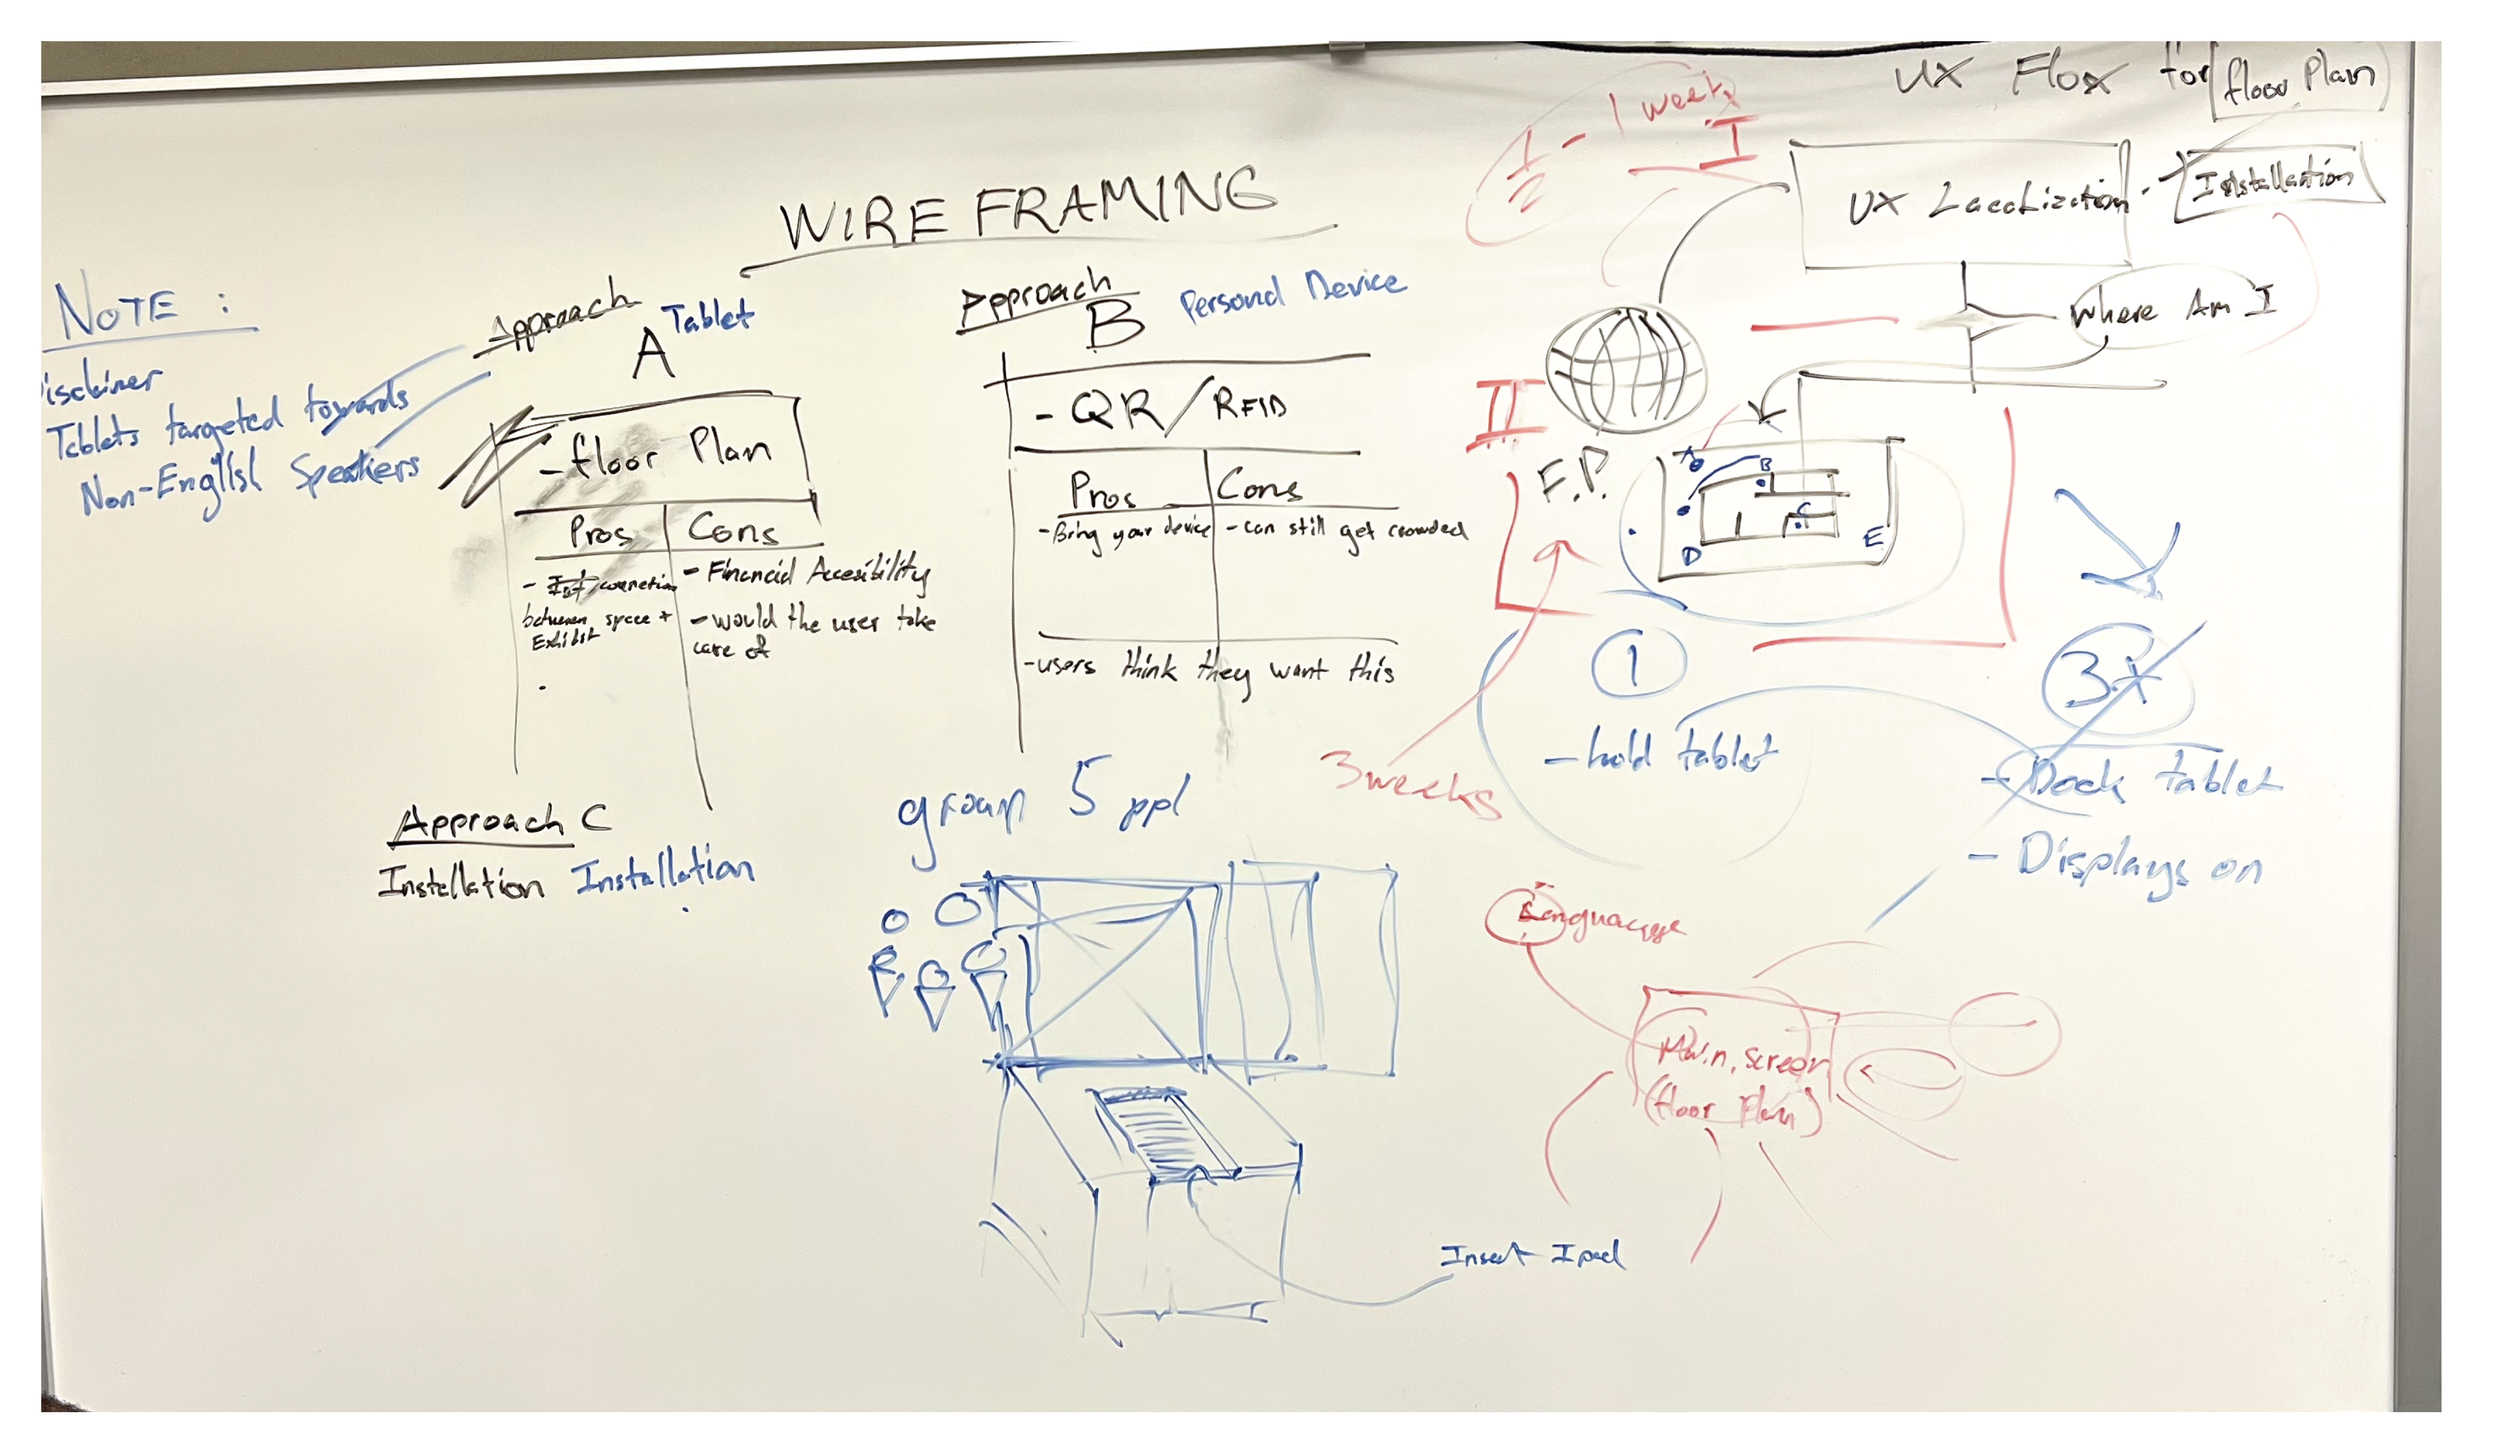 WIRE FRAMING
NOTE :
Tablets targeted towards
Non-English Speakers
Approach
A Tablet
- floor Plan
Pros Cons
- connection
between space +
Exhibit
- Financial Accesibility
- would the user take
care of
Approach
B Personal Device
- QR/RFID
Pros Cons
- Bring your device
- can still get crowded
- users think they want this
Approach C
Installation Installation
group 5 ppl
Insert Ipad
1/2 - 1 week
I
UX Flox for floor Plan
UX Localization
Installation
Where Am I
II
F.P.
A
B
C
D
E
3 weeks
1
- hold tablet
3
- Dock tablet
- Displays on
Language
Main screen
(floor Plan)